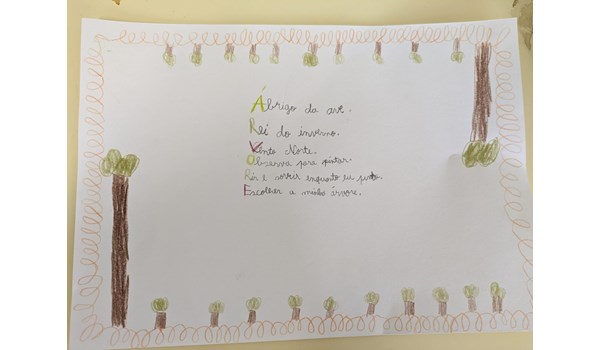 Ábrigo da ave.
Rei do inverno.
Vento Norte.
Observa para pintar.
Rir e sorrir enquanto eu pinto.
Escolher a minha árvore.